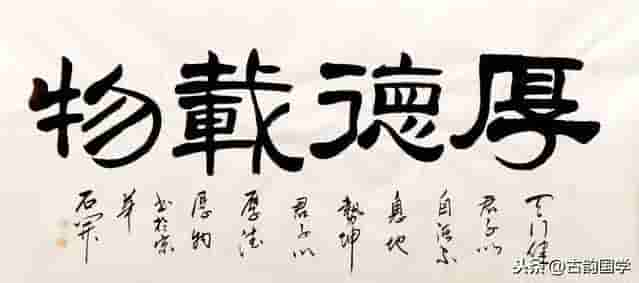 厚德載物
天行健
君子以
自强不
息地
勢坤
君子以
厚德
物
书於京
华
石开
头条@古韵国学